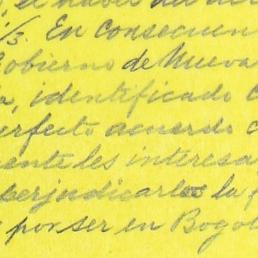 el haber del
1/3. En consecuen
Gobierno de Nueva
a, identificado c
perfecto acuerdo c
mente les interesa
perjudicarlos la f
por ser en Bogot